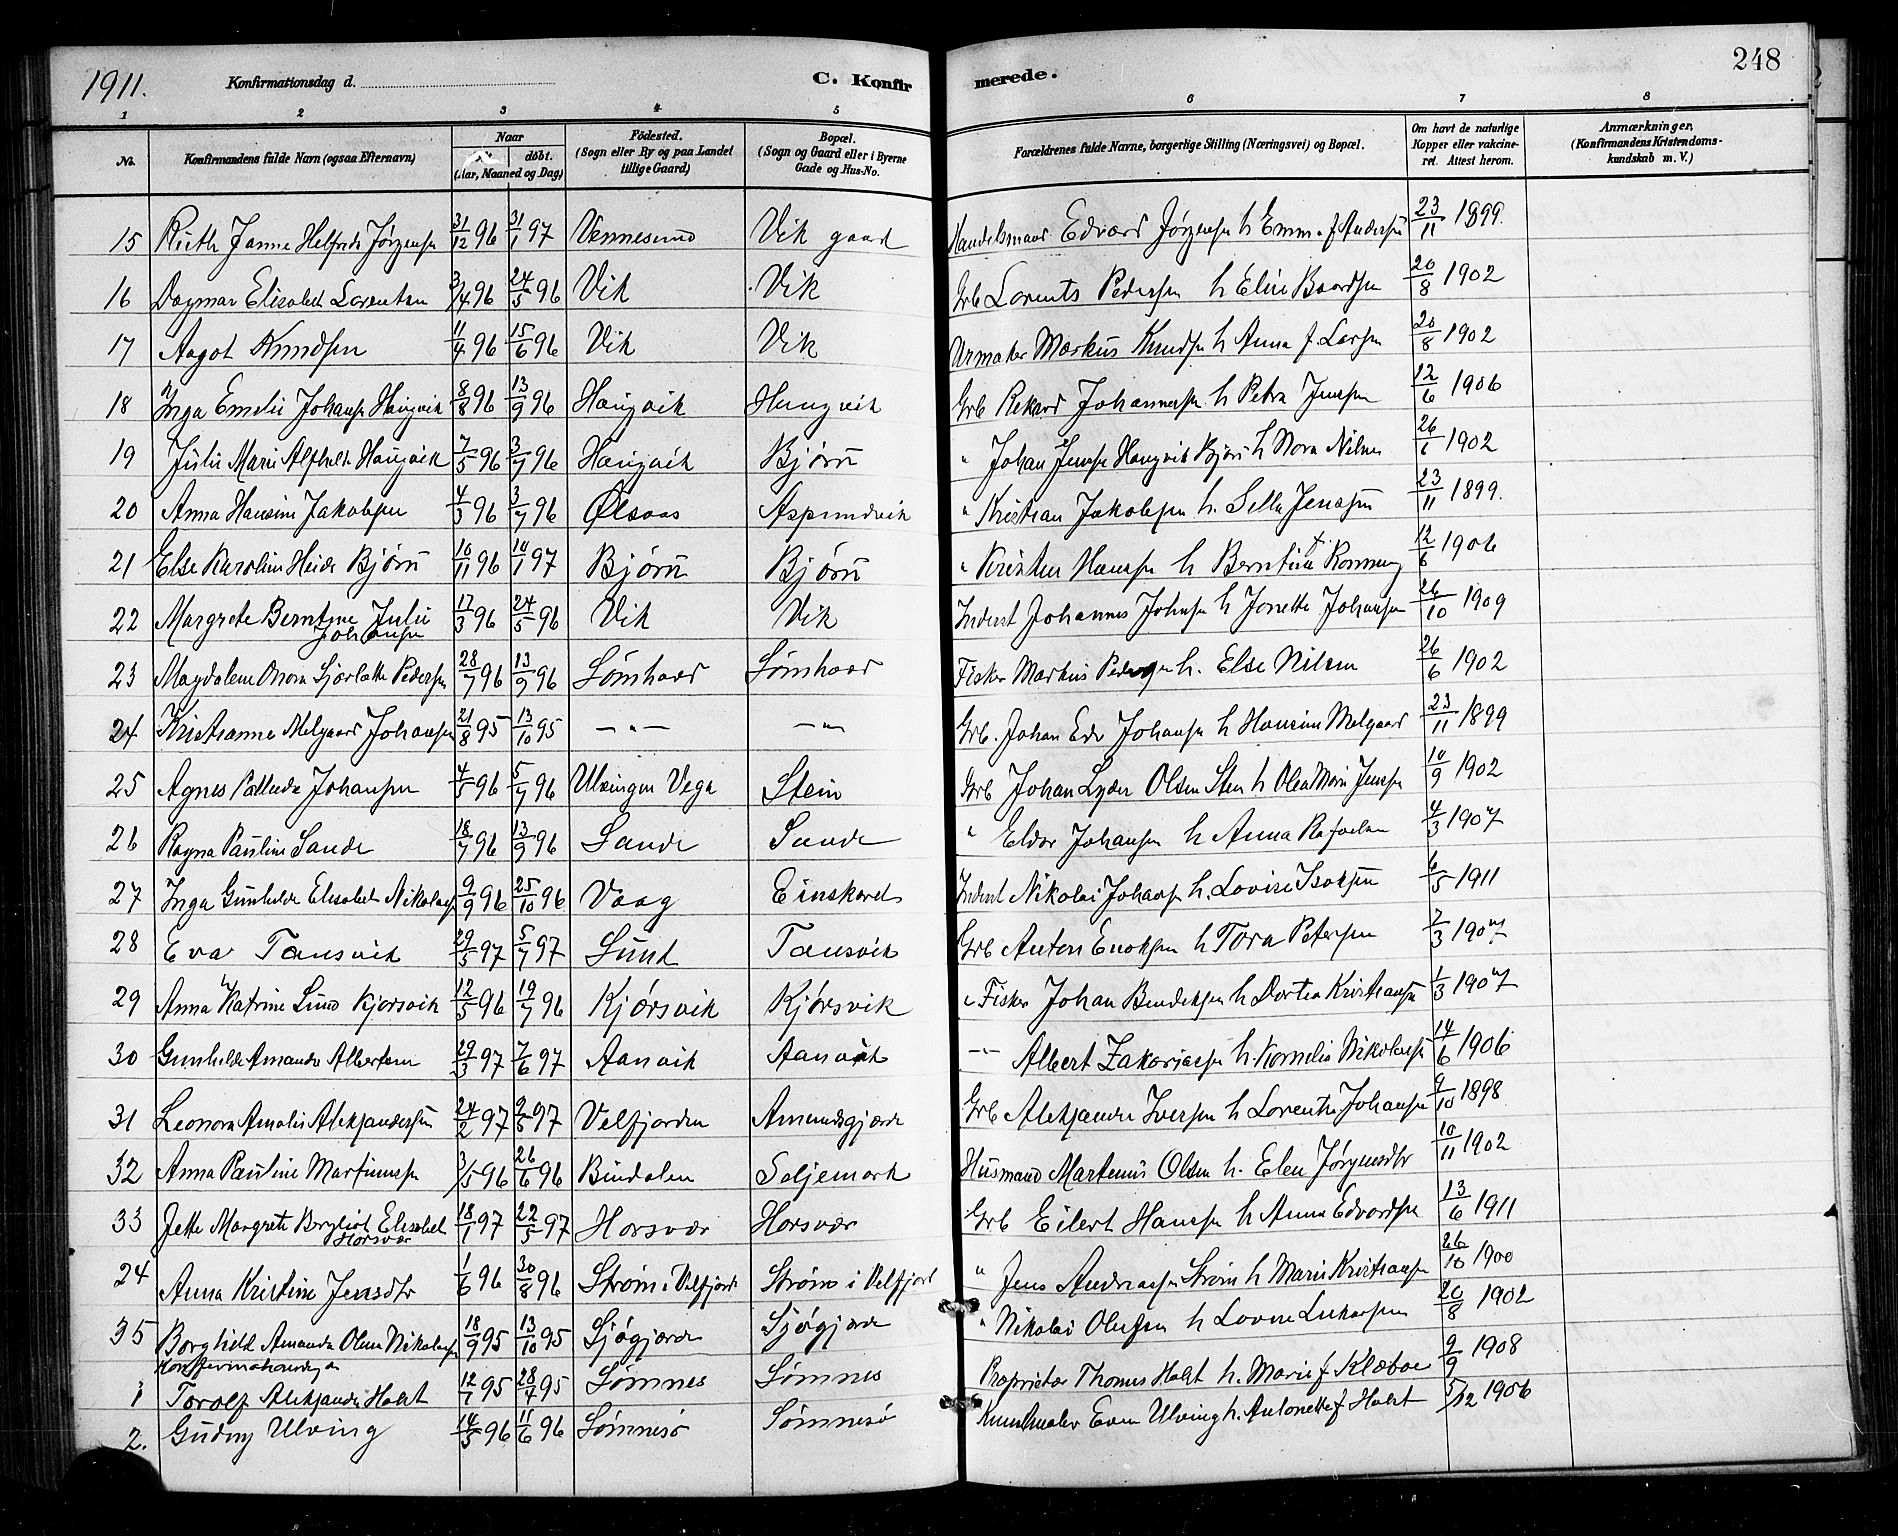 1911. Konfirmationsdag d. C. Konfirmerede. 248
1 2 3 4 5 6 7 8
No. Konfirmandens fulde Navn (ogsaa Efternavn) Naar født døbt. (Aar, Maaned og Dag) Födested. (Sogn eller By og paa Landet tillige Gaard) Bopæl. (Sogn og Gaard eller i Byerne Gade og Hus-No. Forældrenes fulde Navne, borgerlige Stilling (Næringsvei) og Bopæl. Om havt de naturlige Kopper eller vakcineret. Attest herom. Anmærkninger. (Konfirmandens Kristendomskundskab m. V.)
15 Ruth Janne Helfride Jørgensen 31/12 96 31/1 97 Vennesund Vik gaard Handelsmand Edvard Jørgensen h Emma f Andersen 23/11 1899.
16 Dagmar Elisabet Lorentsen 3/4 96 24/5 96 Vik Vik Grb Lorents Pedersen h Elise Baardsen 20/8 1902
17 Aagot Knudsen 11/4 96 15/6 96 Vik Vik Urmaker Markus Knudsen h Anna f. Larsen 20/8 1902
18 Inga Emelie Johansen Haugvik 8/8 96 13/9 96 Haugvik Haugvik Grb Rikard Johannessen h Petra Jensen 12/6 1906
19 Julie Marie Alfhild Haugvik 7/5 96 3/7 96 Haugvik Bjørn " Johan Jensen Haugvik Bjørn h Nora Nilsen 26/6 1902
20 Anna Hansine Jakobsen 4/3 96 3/7 96 Ølsaas " Kristian Jakobsen h. Sella Jenssen 23/11 1899.
21 Else Karoline Heide Bjørn 10/11 96 10/1 97 Bjørn Bjørn " Kristen Hansen h Berntine Rønning 12/6 1906
22 Margrete Berntine Julie Johansen 17/3 96 24/5 96 Vik Vik Inderst Johannes Johnsen h Jonette Johansen 26/10 1909
23 Magdalene Onora Pedersen 28/7 96 13/9 96 Sømhovd Sømhovd Fisker Markus Pedersen h. Else Nilsen 26/6 1902
24 Kristianne Melgaard Johansen 21/8 95 13/10 95 — " — — " Grb. Johan Edv Johansen h Hansine Melgaard 23/11 1899
25 Agnes Johansen 4/5 96 5/7 96 Ulvingen Vega Stein Grb Johan Lyder Olsen Sten h Olea Marie Jensen 10/9 1902
26 Ragna Pauline Sande 18/7 96 13/9 96 Sande Sande " Eldor Johansen h Anna Rafaelsen 4/3 1907
27 Inga Gunhilde Elisabet Nikolaisen 9/9 96 25/10 96 Vaag Einskard Inderst Nikolai Johansen h. Lovise Isaksen 6/5 1911
28 Eva Tansvik 29/5 97 5/7 97 Sund Tansvik Grb Anton Enoksen h Tora Petersen 7/3 1907
29 Anna Katrine Sund Kjørsvik 12/5 96 19/7 96 Kjørsvik Kjørsvik " Fisker Johan Bendiksen h Dortea Kristiansen 1/3 1907
30 Gunhilde Amanda Albertsen 29/3 97 7/6 97 Aanvik Aanvik — " — Albert Zakariassen h. Kornelia Nikolaisen 14/6 1906
31 Leonora Amalie Aleksandersen 24/2 97 9/5 97 Velfjorden Amundsgjærde Grb Aleksander Iversen h Lorentse Johansen 9/10 1898
32 Anna Pauline Martinussen 3/5 96 26/6 96 Bindalen Saljemark Husmand Martinus Olsen h. Elen Jørgensdtr 10/11 1902
33 Jette Margrete Bergliot Elisabet Horsvær 18/1 97 22/5 97 Horsvær Horsvær Grb Eilert Hansen h Anna Edvardsen 13/6 1911
24 Anna Kristine Jensdtr 1/6 96 30/8 96 Strøm i Velfjord Strøm i Velfjord " Jens Andreassen Strøm h Marie Kristiansen 26/10 1900
35 Borghild Amanda Oline Nikolaisen 18/9 95 13/10 95 Sjøgjærde Sjøgjærde " Nikolai Olufsen h Lovise Lukassen 20/8 1902
Konfirmationsdag d
1 Torolf Aleksander Holst 12/1 95 28/4 95 Sømnes Sømnes Proprietær Thomas Holst h. Marie f Klæboe 9/9 1908
2. Gudny Ulving 14/3 96 11/6 96 Sømnesø Sømnesø Kunstmaler Even Ulving h. Antonette f Holst 5/12 1906